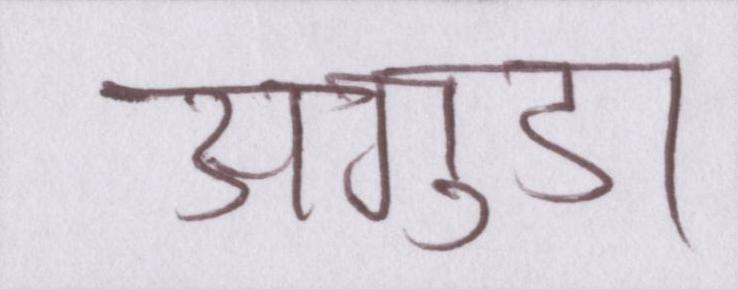 अगुडा